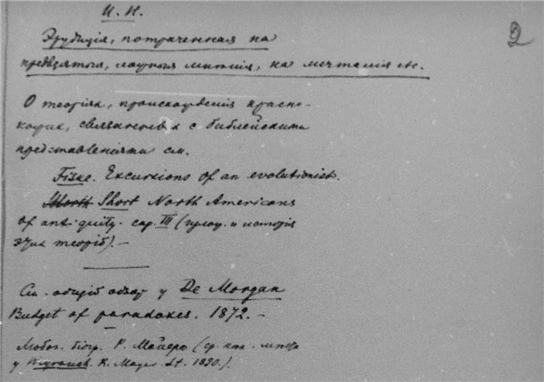 И. Н.
2
Эрудиція, потраченная на
предвзятыя, мнѣнія, на мечтанія etc.
О теоріях, происхожденія красно-
кожих, связанных с библейскими
представленіями см.
Fiske. Excursions of an evolutionist.
Short North Americans
of antiquity. cap. III (и исторія
этих теорій). —
См. общій обзор у De Morgan
Budget of paradoxes. 1872. —
Любоп. біогр. Р. Майера (ср.
у R. Mayer. St. 1890.).